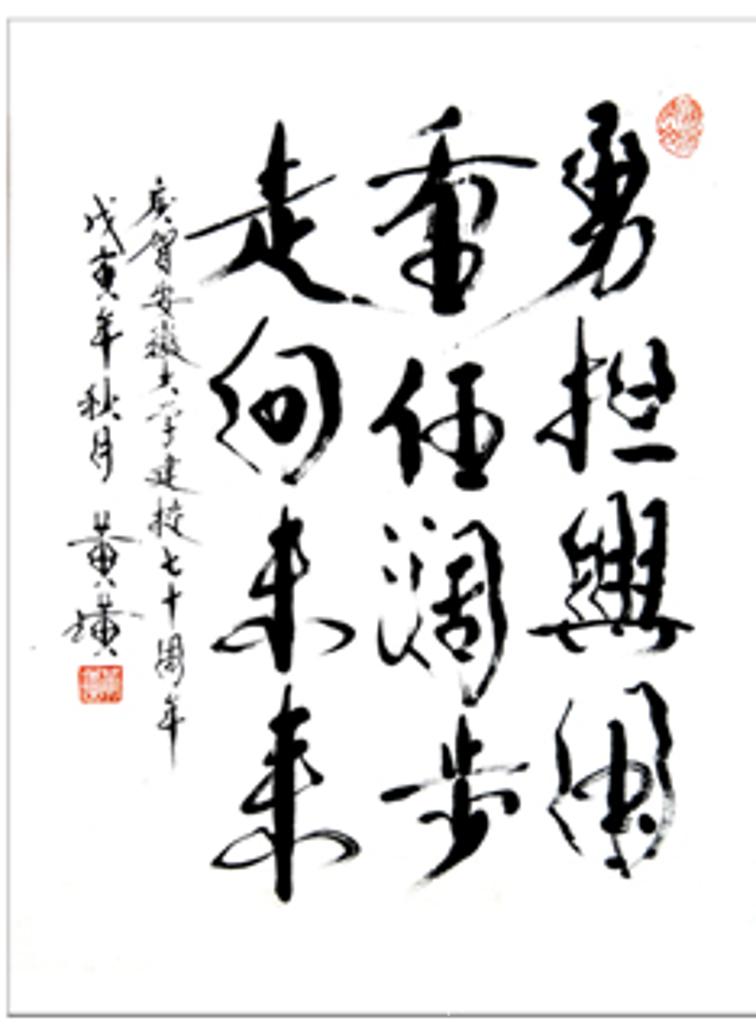 勇担兴国
重任阔步
走向未来
庆贺安徽大学建校七十周年
戊寅年秋月 黄璜